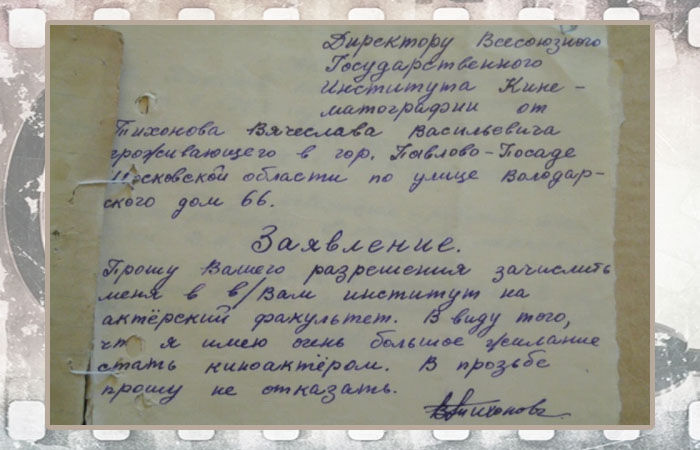 Директору Всесоюзного
Государственного
Института Кине-
матографии от
Тихонова Вячеслава Васильевича
проживающего в гор. Павлово-Посаде
Московской области по улице Володар-
ского дом 66.
Заявление.
Прошу Вашего разрешения зачислить
меня в в/Вам институт на
актёрский факультет. В виду того,
что я имею очень большое желание
стать киноактёром. В прозьбе
прошу не отказать.
ВТихонов